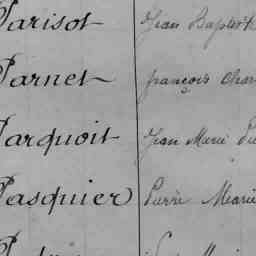 Parisot Jean Baptist
Parnet françois Char
Parquoit Jean Marie Pie
Pasquier Pierre Marie